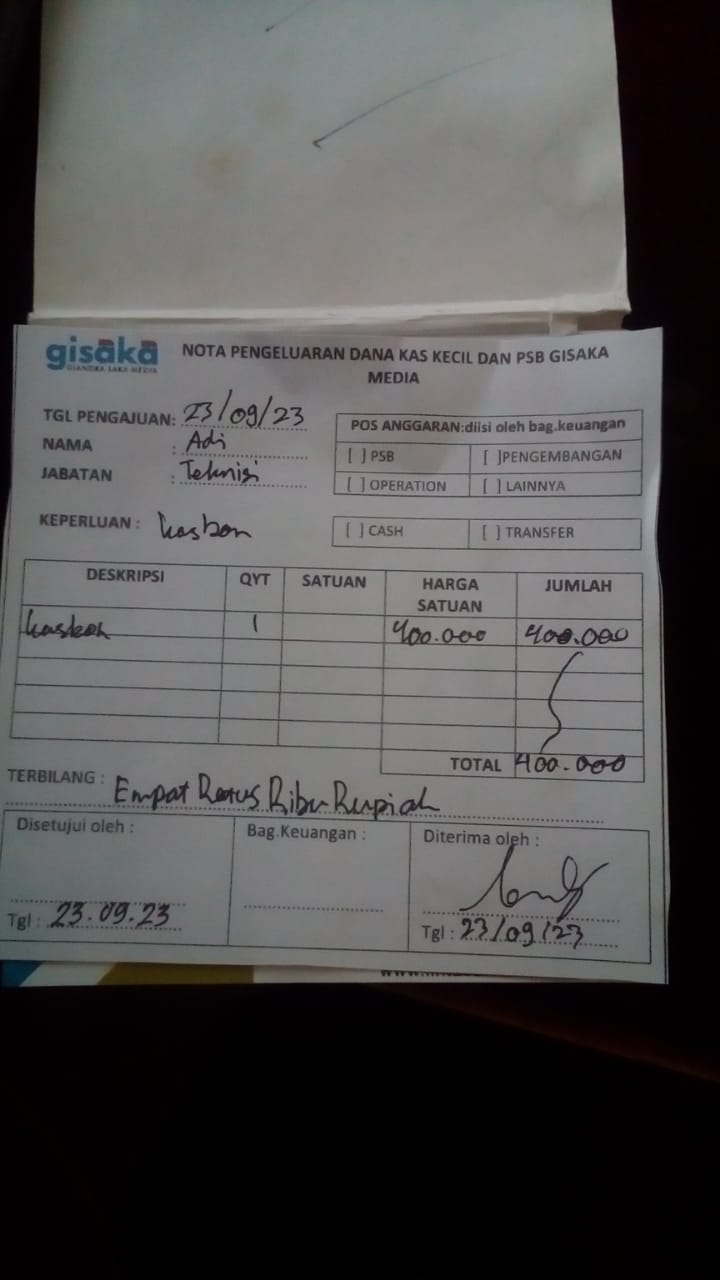 gisaka
GIANDRA SAKA MEDIA
NOTA PENGELUARAN DANA KAS KECIL DAN PSB GISAKA
MEDIA
TGL PENGAJUAN: 23/09/23
NAMA : Adi
JABATAN : Teknisi
POS ANGGARAN:diisi oleh bag.keuangan
[ ] PSB [ ]PENGEMBANGAN
[ ] OPERATION [ ] LAINNYA
KEPERLUAN : kasbon
[ ] CASH [ ] TRANSFER
DESKRIPSI QYT SATUAN HARGA SATUAN JUMLAH
kasbon 1 400.000 400.000
TOTAL 400.000
TERBILANG : Empat Ratus Ribu Rupiah
Disetujui oleh : Bag.Keuangan : Diterima oleh :
Tgl : 23.09.23 Tgl : 23/09/23